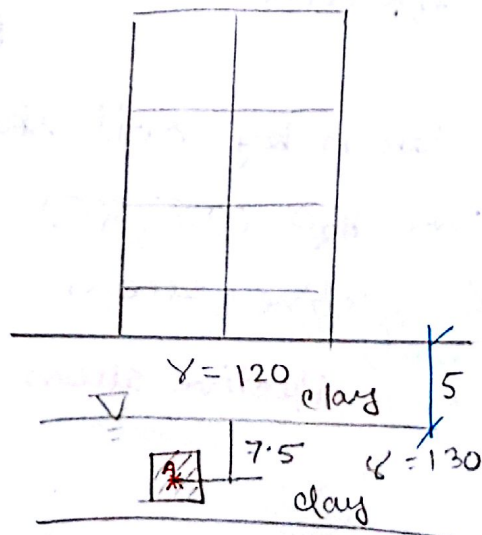 γ = 120
clay
5
7.5
γ = 130
A
clay